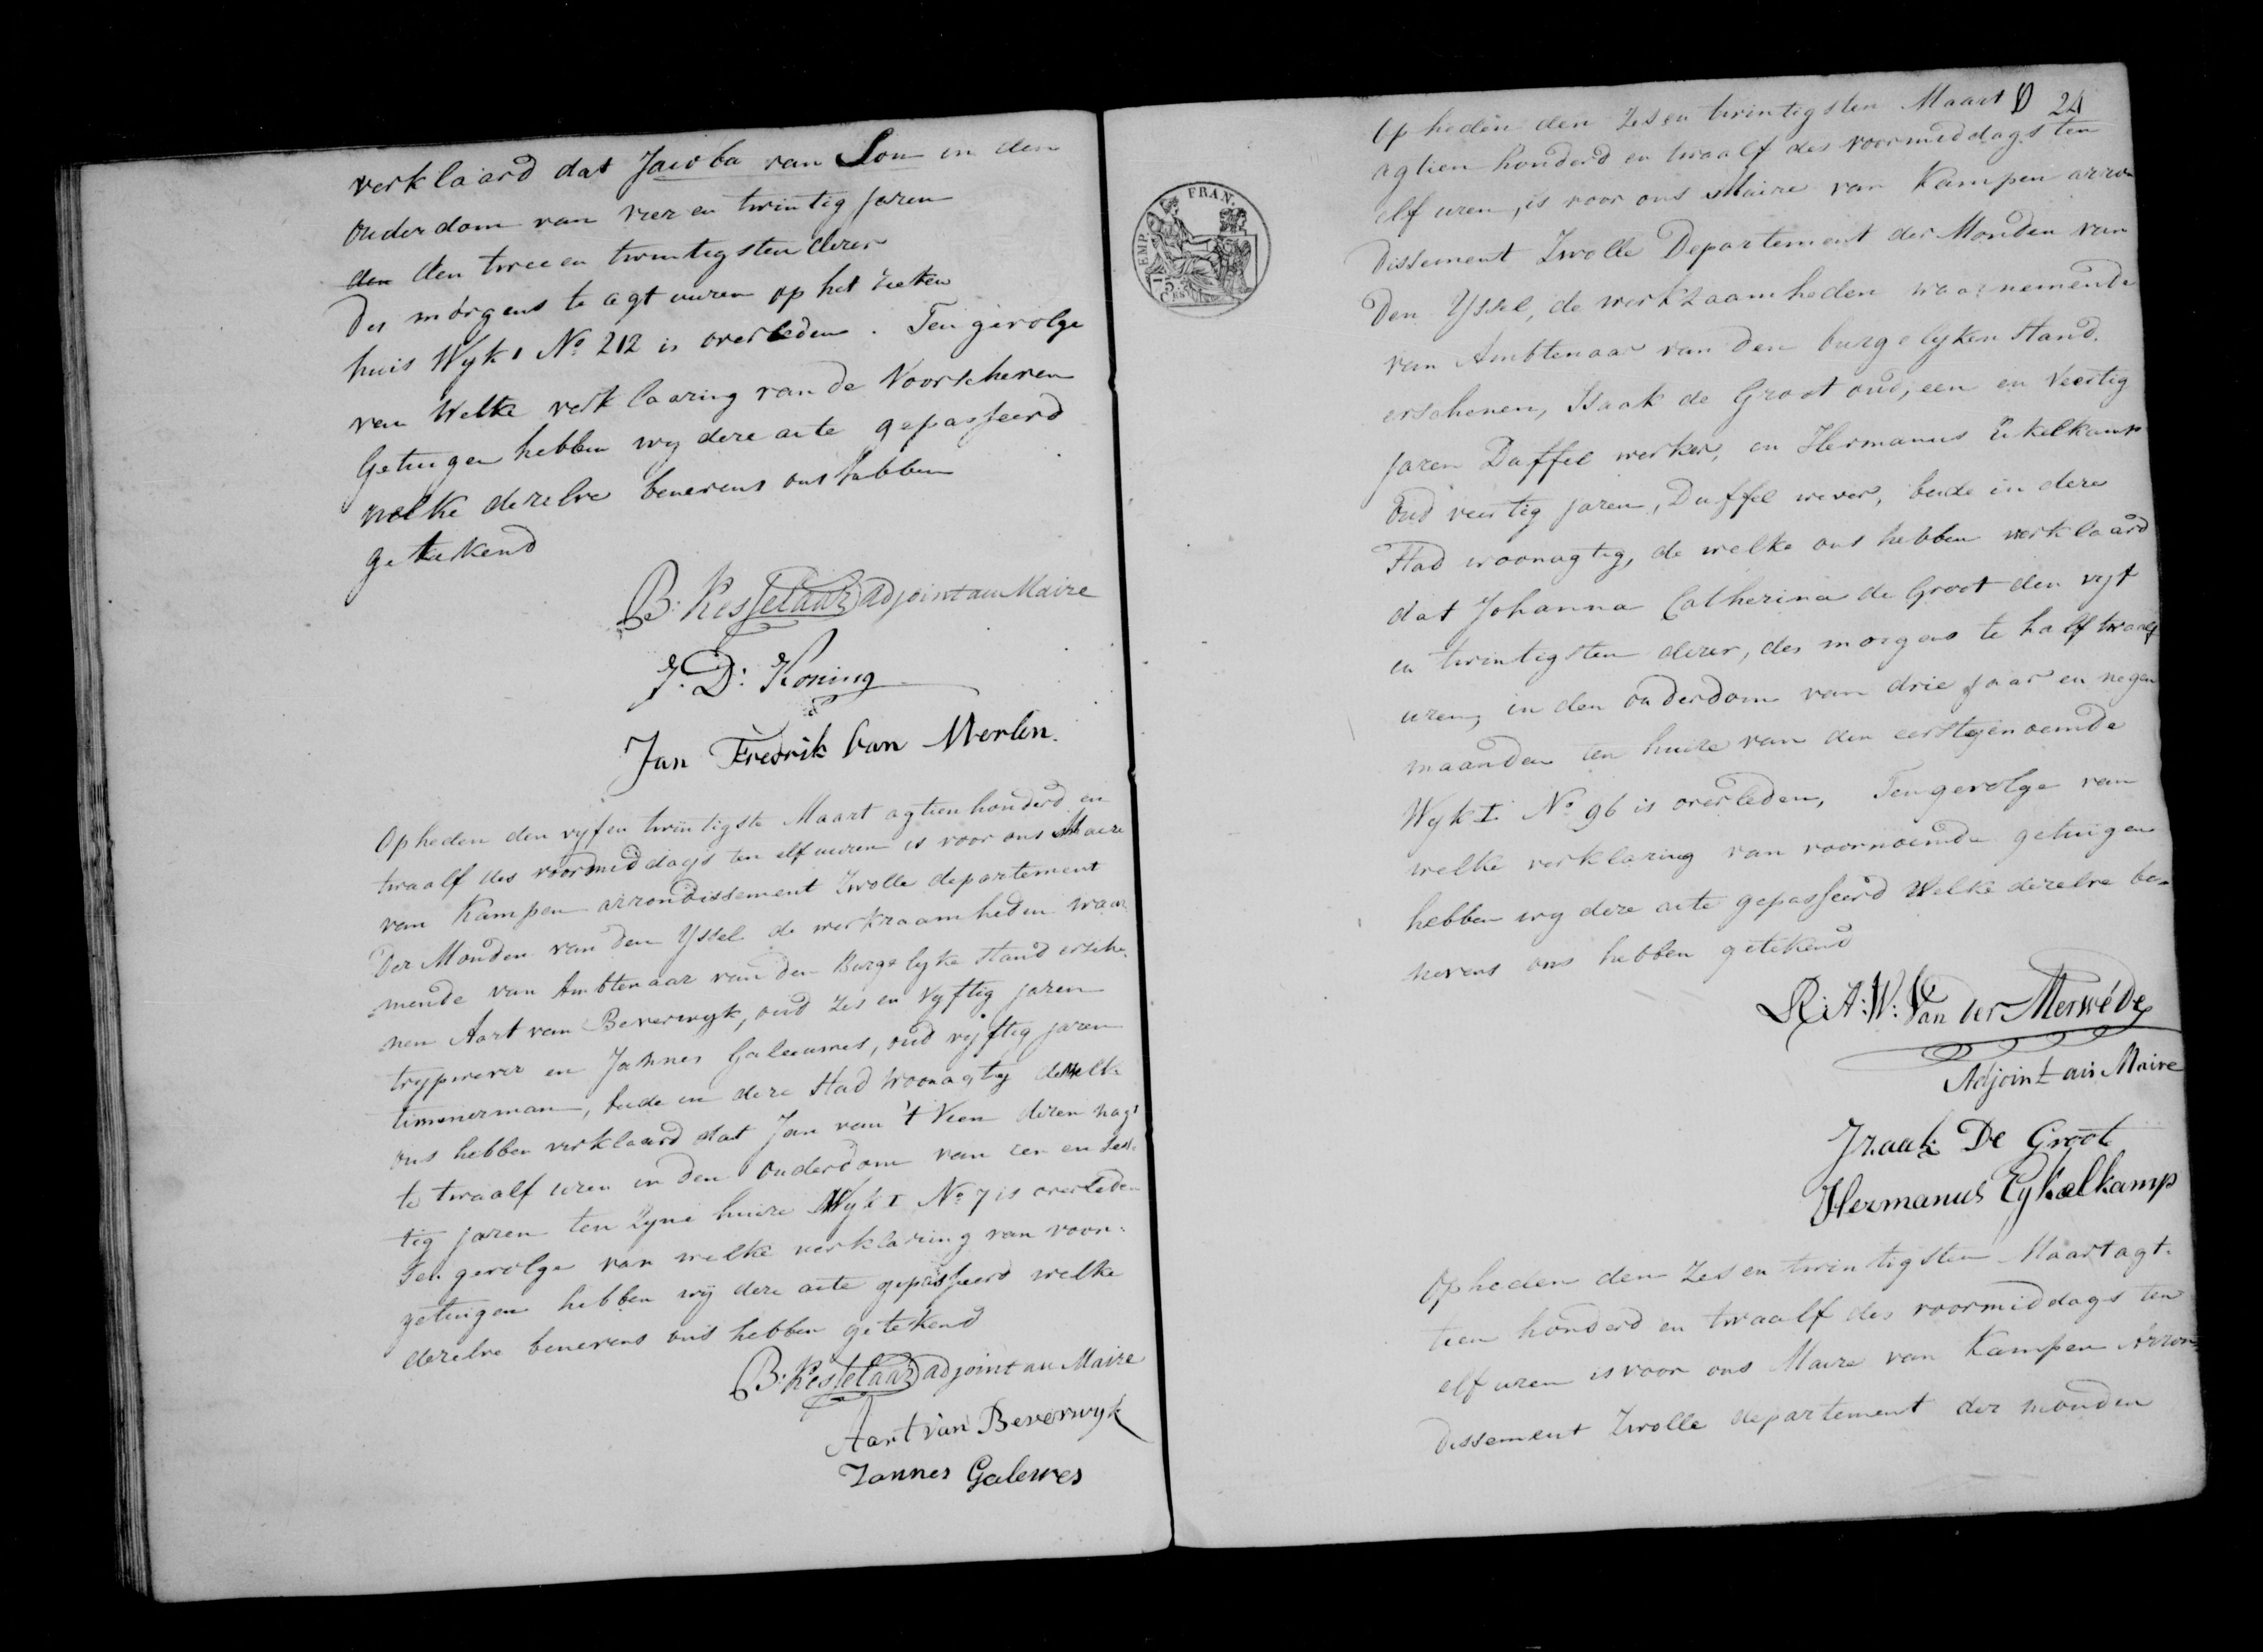 verklaard dat Jacoba van Son in den
ouderdom van vier en twintig jaren
den den twee en twintigsten dezer
des morgens te agt uuren op het zieken
huis Wyk 1 No 212 is overleden. Ten gevolge
van Welke verklaaring van de Voorschreven
Getuigen hebben wy deze acte gepasseerd
welke dezelve benevens ons hebben
getekend
B: Kesselaar adjoint au Maire
J: D: Koning
Jan Fredrik Van Merlen.
Op heden den vyf en twintigste Maart agtien honderd en
twaalf des voormiddags ten elf uuren is voor ons Maire
van Kampen arrondissement Zwolle departement
Der Monden van den Yssel de werkzaamheden waar
nemende van Ambtenaar van den Burgelyke stand ersche
nen Aart van Beverwyk, oud zes en vyftig jaren
trypwever en Jannes Galeeuwes, oud vyftig jaren
timmerman, beide in deze Stad woonagtig dewelke
ons hebben verklaard dat Jan van 't Veen dezen nagt
te twaalf uren in den ouderdom van een en zes
tig jaren ten Zyne huize Wyk I No 7 is overleden
Ten gevolge van welke verklaring van voor:
getuigen hebben wij deze acte gepasseerd welke
dezelve benevens ons hebben getekend
B: Kesselaar adjoint au Maire
Aart van Beverwyk
Jannes Galewes
24
EMP. FRAN.
75.
Ces
Op heden den Zes en twintigsten Maart
agtien honderd en twaalf des voormiddags ten
elf uren, is voor ons Maire van Kampen arron
dissement Zwolle Departement der Monden van
Den Yssel, de werkzaamheden waarnemende
van Ambtenaar van den burgelyken Stand.
erschenen, Isaak de Groot oud, een en Veertig
jaren Duffel werker, en Hermanus Eikelkamp
Oud veertig jaren, Duffel wever, beide in deze
Stad woonagtig, de welke ons hebben verklaard
dat Johanna Catherina de Groot den vyf
en twintigsten dezer, des morgens te half twaalf
uren, in den ouderdom van drie jaar en negen
maanden ten huize van den eerstgenoemde
Wyk I No 96 is overleden, Ten gevolge van
welke verklaring van voornoemde getuigen
hebben wy deze acte gepasseerd Welke dezelve be=
nevens ons hebben getekend
R: A: W: Van der Merwéde
Adjoint au Maire
Izaak De Groot
Hermanus Eykelkamp
Op heden den Zes en twintigsten Maart agt.
tien honderd en twaalf des voormiddags ten
elf uren is voor ons Maire van Kampen Arron=
dissement Zwolle departement der monden